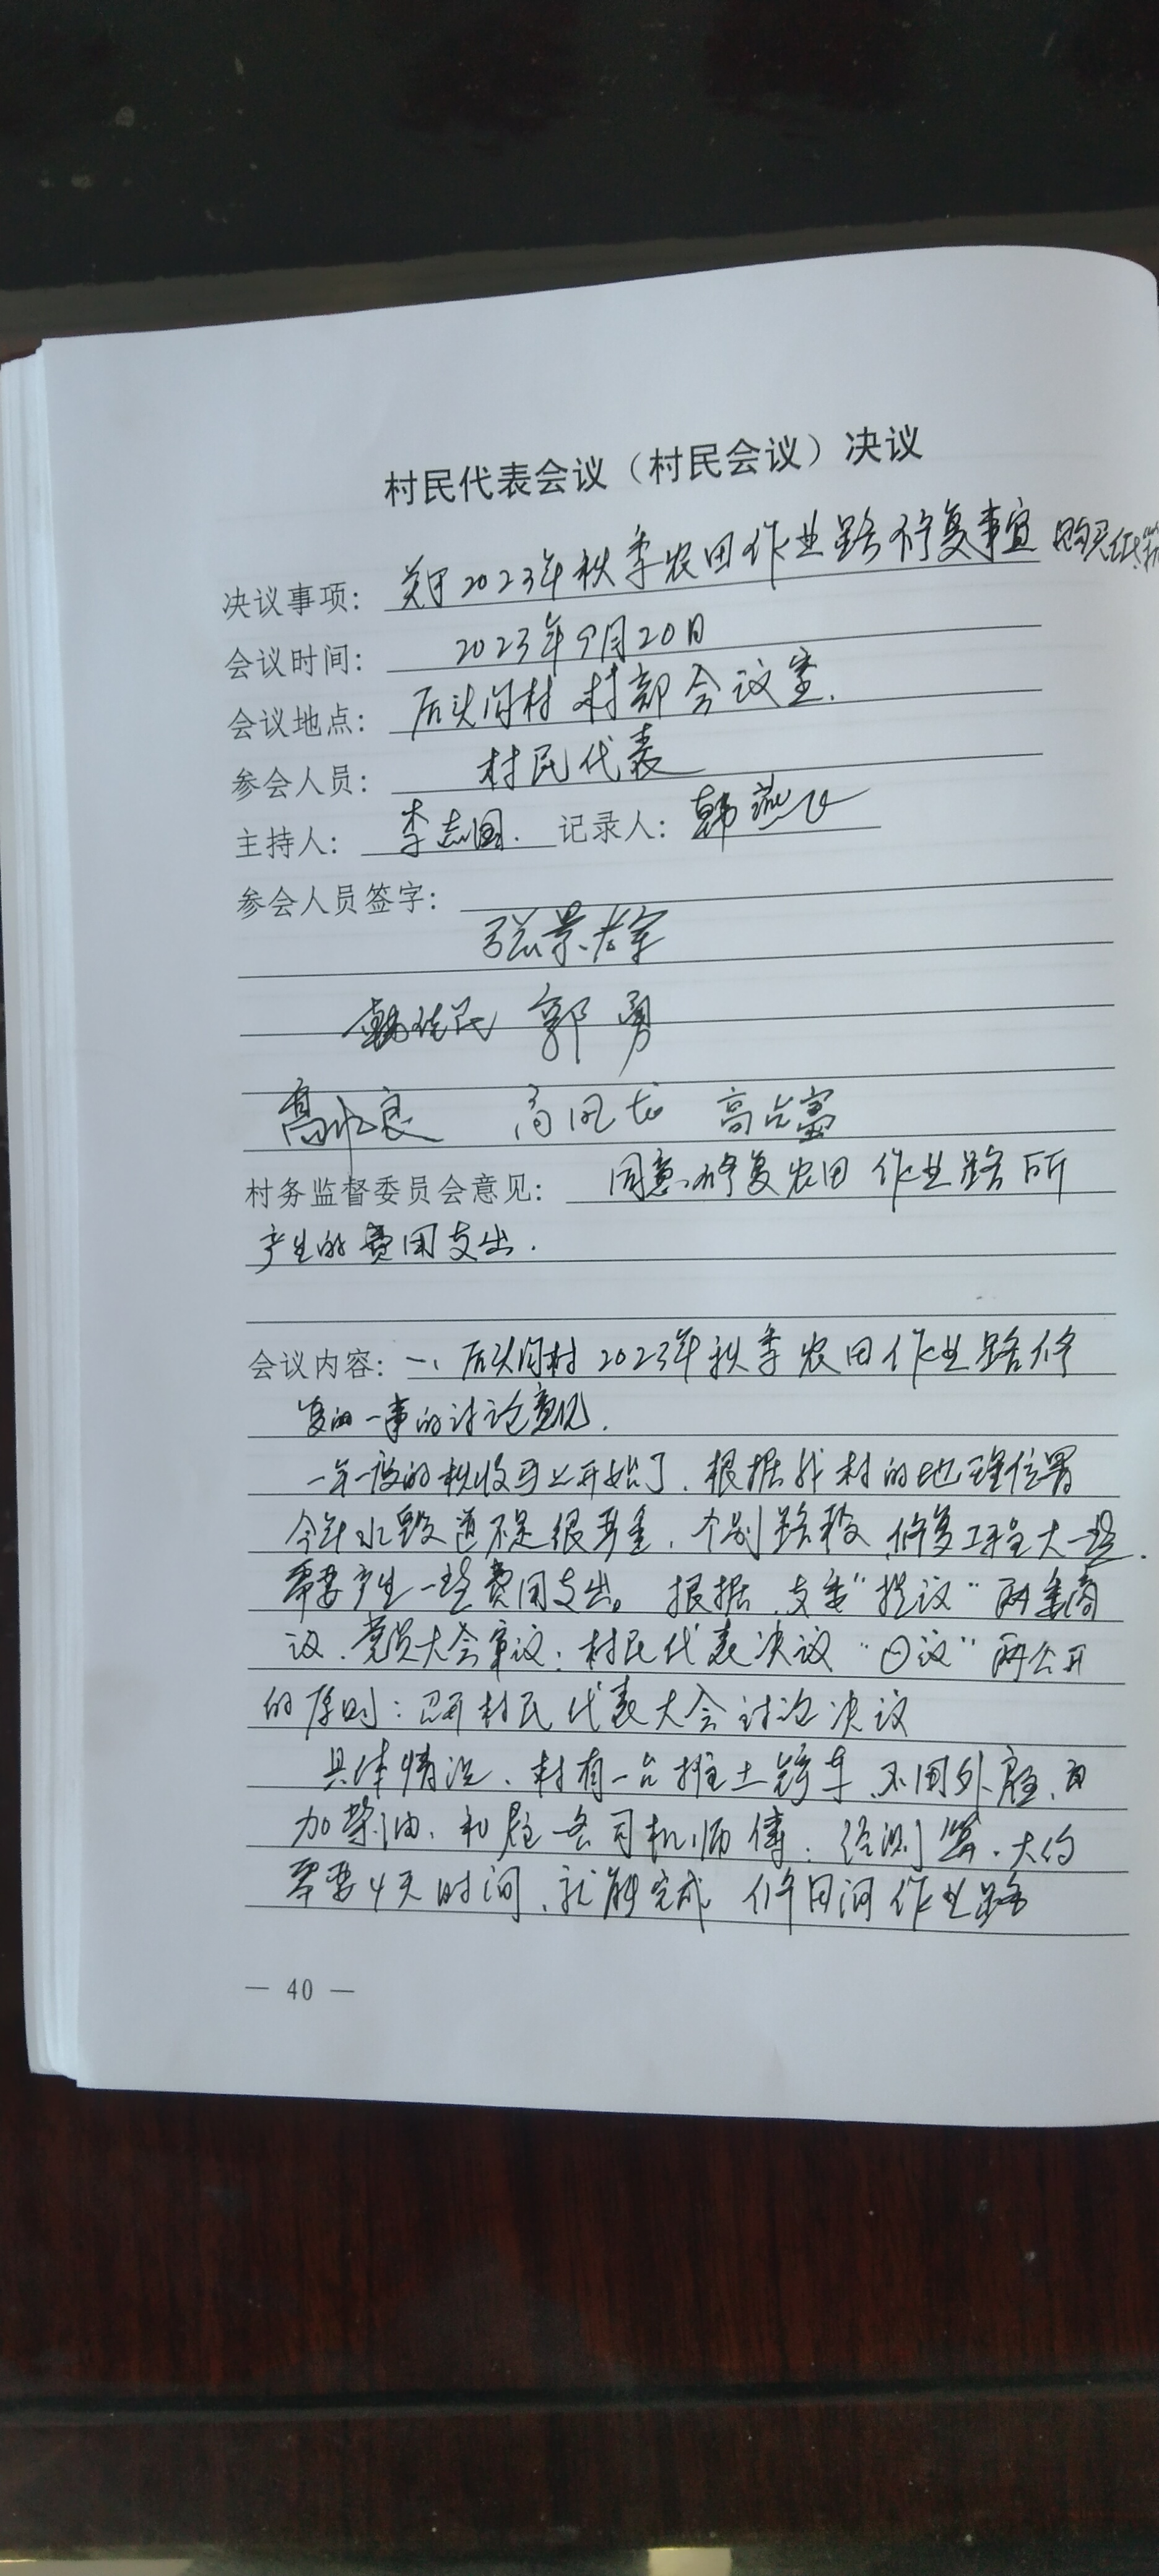 村民代表会议（村民会议）决议
决议事项： 关于2023年秋季农田作业路修复事宜 购买
会议时间： 2023年9月20日
会议地点： 后头沟村 村部会议室.
参会人员： 村民代表
主持人： 李志国. 记录人： 韩
参会人员签字：
张景
韩 民 郭勇
高 良 高凤龙 高占富
村务监督委员会意见： 同意修复农田作业路所
产生的费用支出.
会议内容： 一、后头沟村2023年秋季农田作业路修
复的一事的讨论意见.
一年一度的秋收马上开始了.根据我村的地理位置
今年水毁道不是很严重.个别路段、修复工程大一些.
需要产生一些费用支出。根据、支委“提议”两委商
议、党员大会审议：村民代表决议“四议”两公开
的原则：召开村民代表大会讨论决议
具体情况、村有一台推土铲车、不用外雇、自
加柴油、和雇一名司机师傅：经测算.大约
需要4天时间、就能完成 修田间作业路
— 40 —